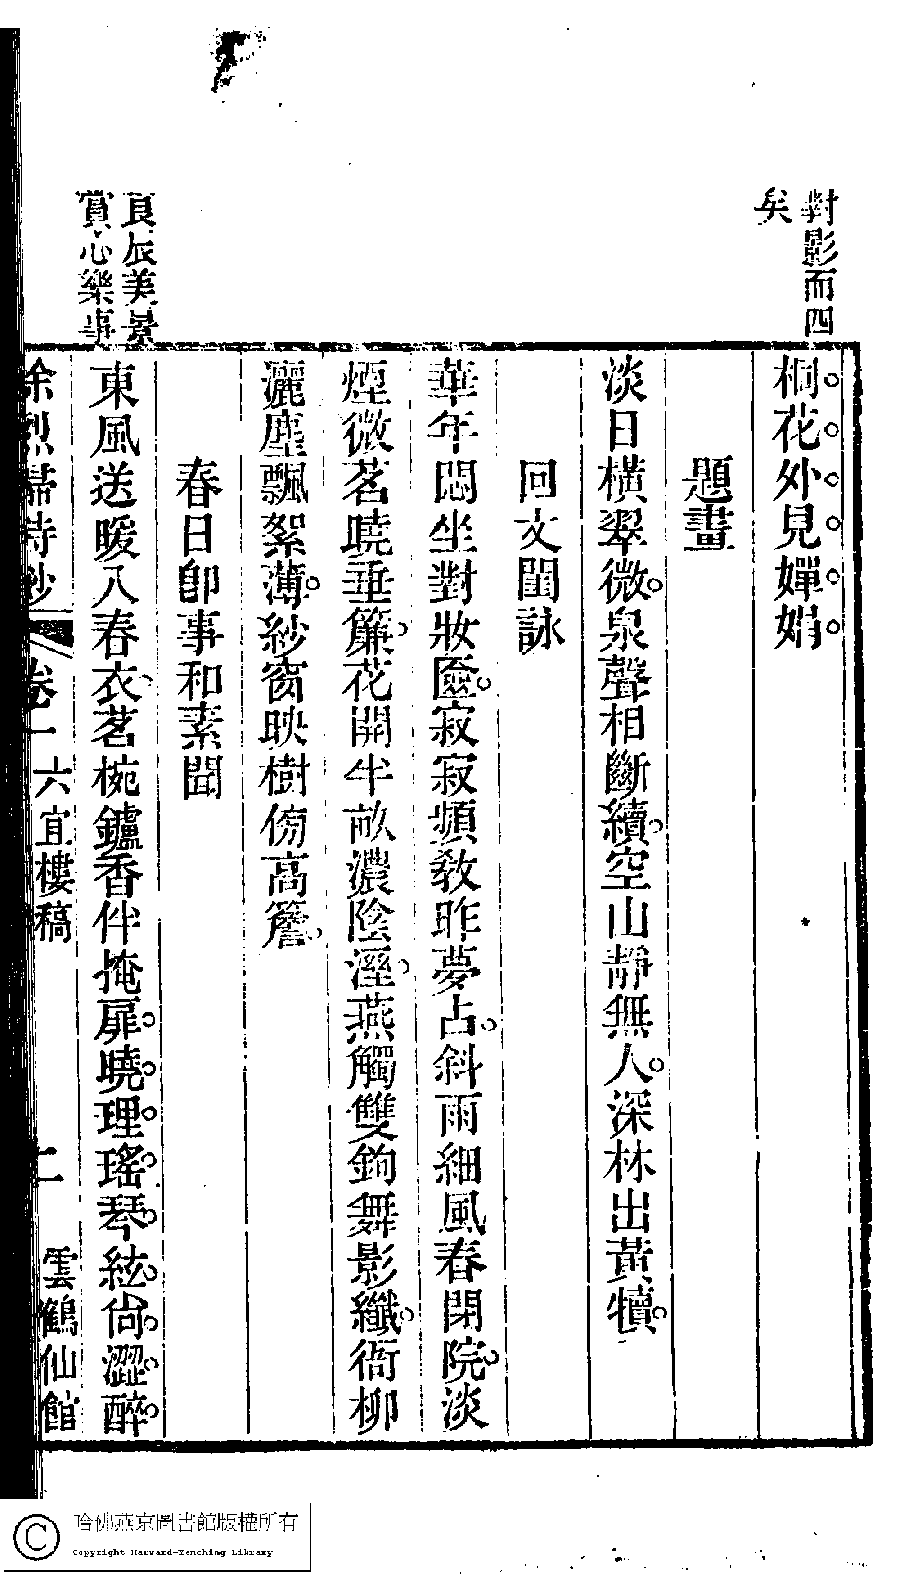 對影而四
矣
良辰美景
賞心樂事
桐花外見嬋娟
題畫
淡日橫翠微泉聲相斷續空山靜無人深林出黃犢
回文閨詠
華年悶坐對妝匳寂寂頻敎昨夢占斜雨細風春閉院淡
煙微茗曉垂簾花開半畝濃陰溼燕觸雙鉤舞影纖衙柳
灑塵飄絮薄紗窗映樹傍高簷
春日卽事和素聞
東風送暖入春衣茗椀鑪香伴掩扉曉理瑤琴絃尙澀醉
卷一 六宜樓稿 二 雲鶴仙館
哈佛燕京圖書館版權所有
Copyright Harvard-Yenching Library